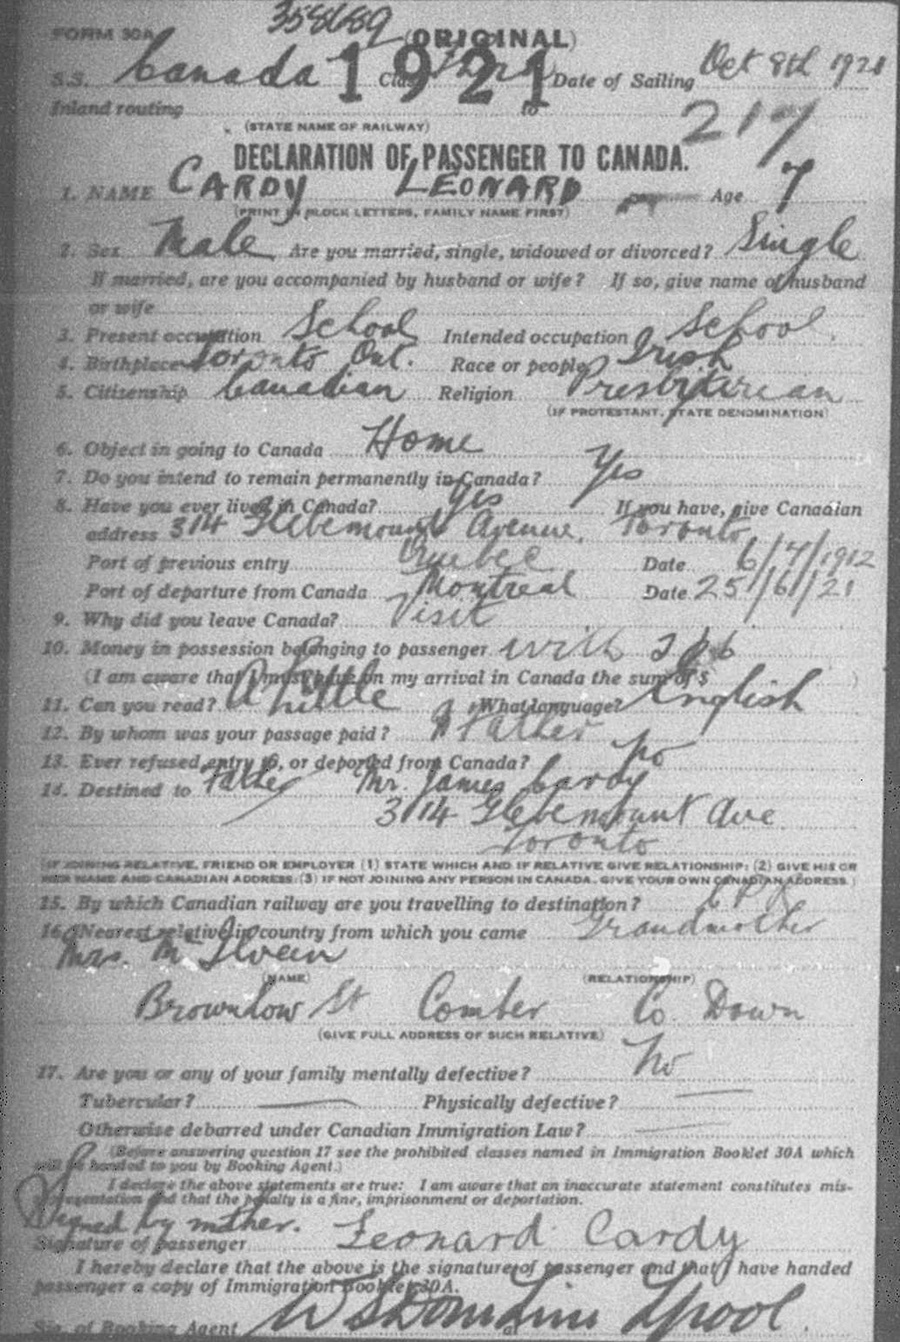 FORM 30A 358689 (ORIGINAL)
S.S. Canada 1921 Class Third Date of Sailing Oct 8th 1921
Inland routing to 217
(STATE NAME OF RAILWAY)
DECLARATION OF PASSENGER TO CANADA.
1. NAME CARDY LEONARD Age 7
(PRINT IN BLOCK LETTERS, FAMILY NAME FIRST)
2. Sex Male Are you married, single, widowed or divorced? Single
If married, are you accompanied by husband or wife? If so, give name of husband
or wife
3. Present occupation School Intended occupation School
4. Birthplace Toronto Ont. Race or people Irish
5. Citizenship Canadian Religion Presbyterian
(IF PROTESTANT, STATE DENOMINATION)
6. Object in going to Canada Home
7. Do you intend to remain permanently in Canada? Yes
8. Have you ever lived in Canada? Yes If you have, give Canadian
address 314 Glebemount Avenue, Toronto
Port of previous entry Quebec Date 6/7/1912
Port of departure from Canada Montreal Date 25/6/21
9. Why did you leave Canada? Visit
10. Money in possession belonging to passenger with 216
(I am aware that I must have on my arrival in Canada the sum of $ )
11. Can you read? A little What language? English
12. By whom was your passage paid? Father
13. Ever refused entry to, or deported from Canada? No
14. Destined to Father Mr. James Cardy
314 Glebemount Ave
Toronto
(IF JOINING RELATIVE, FRIEND OR EMPLOYER (1) STATE WHICH AND IF RELATIVE GIVE RELATIONSHIP; (2) GIVE HIS OR
HER NAME AND CANADIAN ADDRESS. (3) IF NOT JOINING ANY PERSON IN CANADA, GIVE YOUR OWN CANADIAN ADDRESS.)
15. By which Canadian railway are you travelling to destination? C P R
16. Nearest relative in country from which you came Grandmother
Mrs. McIlveen
(NAME) (RELATIONSHIP)
Brownlow St Comber Co. Down
(GIVE FULL ADDRESS OF SUCH RELATIVE)
17. Are you or any of your family mentally defective? No
Tubercular? Physically defective?
Otherwise debarred under Canadian Immigration Law?
(Before answering question 17 see the prohibited classes named in Immigration Booklet 30A which
will be handed to you by Booking Agent.)
I declare the above statements are true: I am aware that an inaccurate statement constitutes mis-
representation and that the penalty is a fine, imprisonment or deportation.
Signed by mother.
Signature of passenger Leonard Cardy
I hereby declare that the above is the signature of passenger and that I have handed
passenger a copy of Immigration Booklet 30A.
Sig. of Booking Agent at L'pool